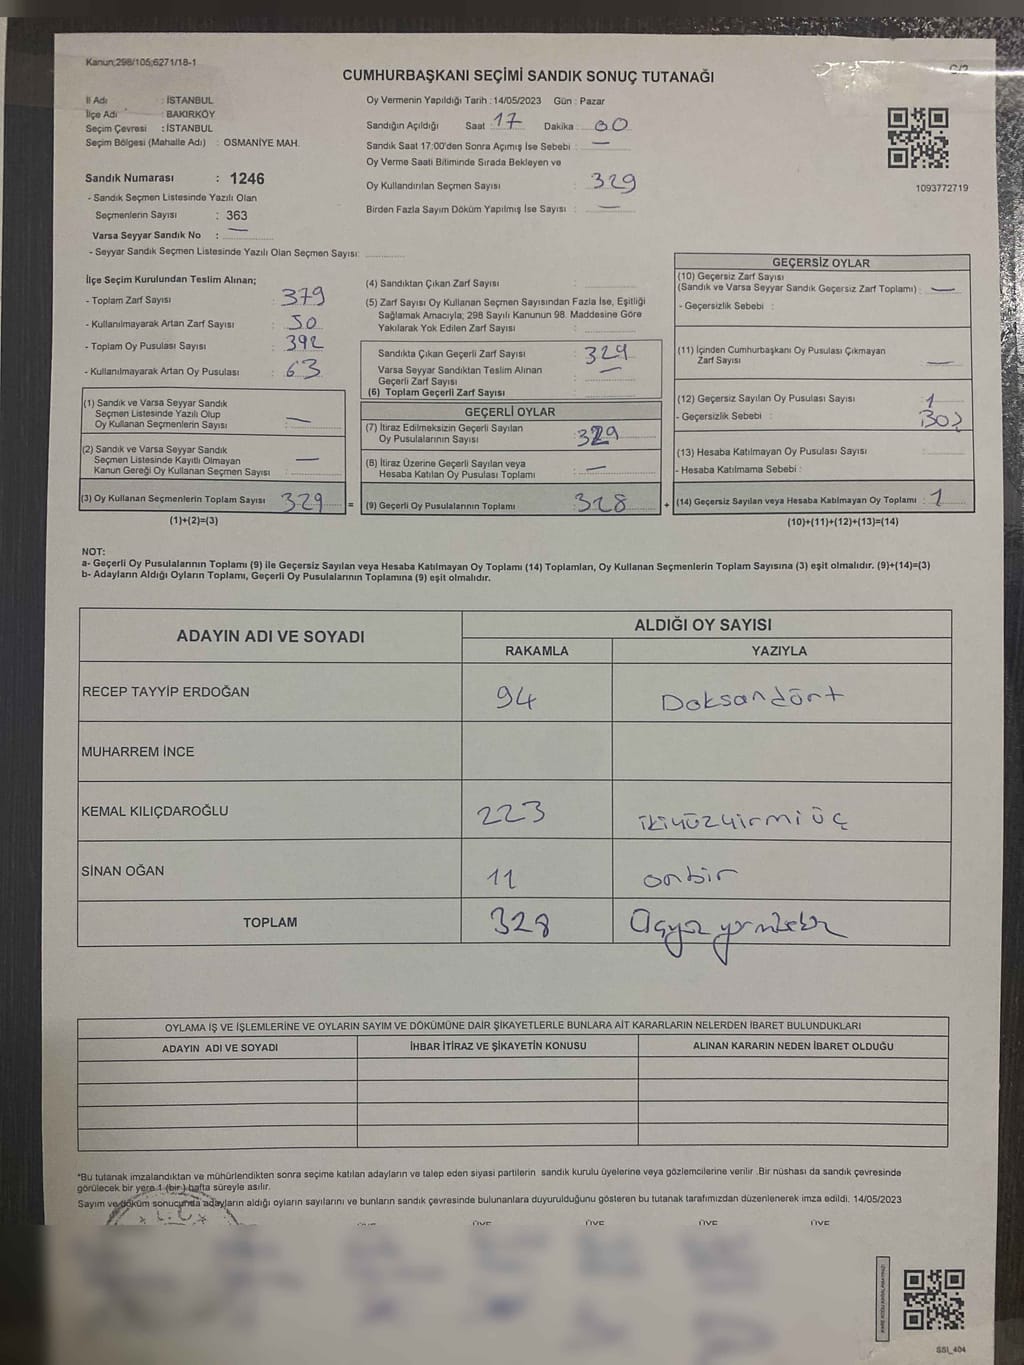 Kanun;298/105;6271/18-1
C/2
CUMHURBAŞKANI SEÇİMİ SANDIK SONUÇ TUTANAĞI
İl Adı : İSTANBUL
İlçe Adı : BAKIRKÖY
Seçim Çevresi : İSTANBUL
Seçim Bölgesi (Mahalle Adı) : OSMANİYE MAH.
Sandık Numarası : 1246
- Sandık Seçmen Listesinde Yazılı Olan
Seçmenlerin Sayısı : 363
Varsa Seyyar Sandık No : —
- Seyyar Sandık Seçmen Listesinde Yazılı Olan Seçmen Sayısı:
Oy Vermenin Yapıldığı Tarih : 14/05/2023 Gün : Pazar
Sandığın Açıldığı Saat : 17 Dakika : 00
Sandık Saat 17:00'den Sonra Açımış İse Sebebi : —
Oy Verme Saati Bitiminde Sırada Bekleyen ve
Oy Kullandırılan Seçmen Sayısı : 329
Birden Fazla Sayım Döküm Yapılmış İse Sayısı : —
1093772719
İlçe Seçim Kurulundan Teslim Alınan;
- Toplam Zarf Sayısı : 379
- Kullanılmayarak Artan Zarf Sayısı : 50
- Toplam Oy Pusulası Sayısı : 392
- Kullanılmayarak Artan Oy Pusulası : 63
(1) Sandık ve Varsa Seyyar Sandık
Seçmen Listesinde Yazılı Olup
Oy Kullanan Seçmenlerin Sayısı : —
(2) Sandık ve Varsa Seyyar Sandık
Seçmen Listesinde Kayıtlı Olmayan
Kanun Gereği Oy Kullanan Seçmen Sayısı : —
(3) Oy Kullanan Seçmenlerin Toplam Sayısı 329 =
(1)+(2)=(3)
(4) Sandıktan Çıkan Zarf Sayısı :
(5) Zarf Sayısı Oy Kullanan Seçmen Sayısından Fazla İse, Eşitliği
Sağlamak Amacıyla; 298 Sayılı Kanunun 98. Maddesine Göre
Yakılarak Yok Edilen Zarf Sayısı :
Sandıkta Çıkan Geçerli Zarf Sayısı : 329
Varsa Seyyar Sandıktan Teslim Alınan
Geçerli Zarf Sayısı : —
(6) Toplam Geçerli Zarf Sayısı :
GEÇERLİ OYLAR
(7) İtiraz Edilmeksizin Geçerli Sayılan
Oy Pusulalarının Sayısı : 329
(8) İtiraz Üzerine Geçerli Sayılan veya
Hesaba Katılan Oy Pusulası Toplamı : —
(9) Geçerli Oy Pusulalarının Toplamı : 328 +
GEÇERSİZ OYLAR
(10) Geçersiz Zarf Sayısı
(Sandık ve Varsa Seyyar Sandık Geçersiz Zarf Toplamı) : —
- Geçersizlik Sebebi :
(11) İçinden Cumhurbaşkanı Oy Pusulası Çıkmayan
Zarf Sayısı : —
(12) Geçersiz Sayılan Oy Pusulası Sayısı : 1
- Geçersizlik Sebebi : BOŞ
(13) Hesaba Katılmayan Oy Pusulası Sayısı :
- Hesaba Katılmama Sebebi :
(14) Geçersiz Sayılan veya Hesaba Katılmayan Oy Toplamı : 1
(10)+(11)+(12)+(13)=(14)
NOT:
a- Geçerli Oy Pusulalarının Toplamı (9) ile Geçersiz Sayılan veya Hesaba Katılmayan Oy Toplamı (14) Toplamları, Oy Kullanan Seçmenlerin Toplam Sayısına (3) eşit olmalıdır. (9)+(14)=(3)
b- Adayların Aldığı Oyların Toplamı, Geçerli Oy Pusulalarının Toplamına (9) eşit olmalıdır.
ADAYIN ADI VE SOYADI
ALDIĞI OY SAYISI
RAKAMLA YAZIYLA
RECEP TAYYİP ERDOĞAN 94 Doksandört
MUHARREM İNCE
KEMAL KILIÇDAROĞLU 223 ikiyüzyirmi üç
SİNAN OĞAN 11 onbir
TOPLAM 328 Üçyüz yirmisekiz
OYLAMA İŞ VE İŞLEMLERİNE VE OYLARIN SAYIM VE DÖKÜMÜNE DAİR ŞİKAYETLERLE BUNLARA AİT KARARLARIN NELERDEN İBARET BULUNDUKLARI
ADAYIN ADI VE SOYADI İHBAR İTİRAZ VE ŞİKAYETİN KONUSU ALINAN KARARIN NEDEN İBARET OLDUĞU
*Bu tutanak imzalandıktan ve mühürlendikten sonra seçime katılan adayların ve talep eden siyasi partilerin sandık kurulu üyelerine veya gözlemcilerine verilir .Bir nüshası da sandık çevresinde
görülecek bir yere 1 (bir ) hafta süreyle asılır.
Sayım ve döküm sonucunda adayların aldığı oyların sayılarını ve bunların sandık çevresinde bulunanlara duyurulduğunu gösteren bu tutanak tarafımızdan düzenlenerek imza edildi. 14/05/2023
ÜYE ÜYE ÜYE ÜYE ÜYE
SSI_404